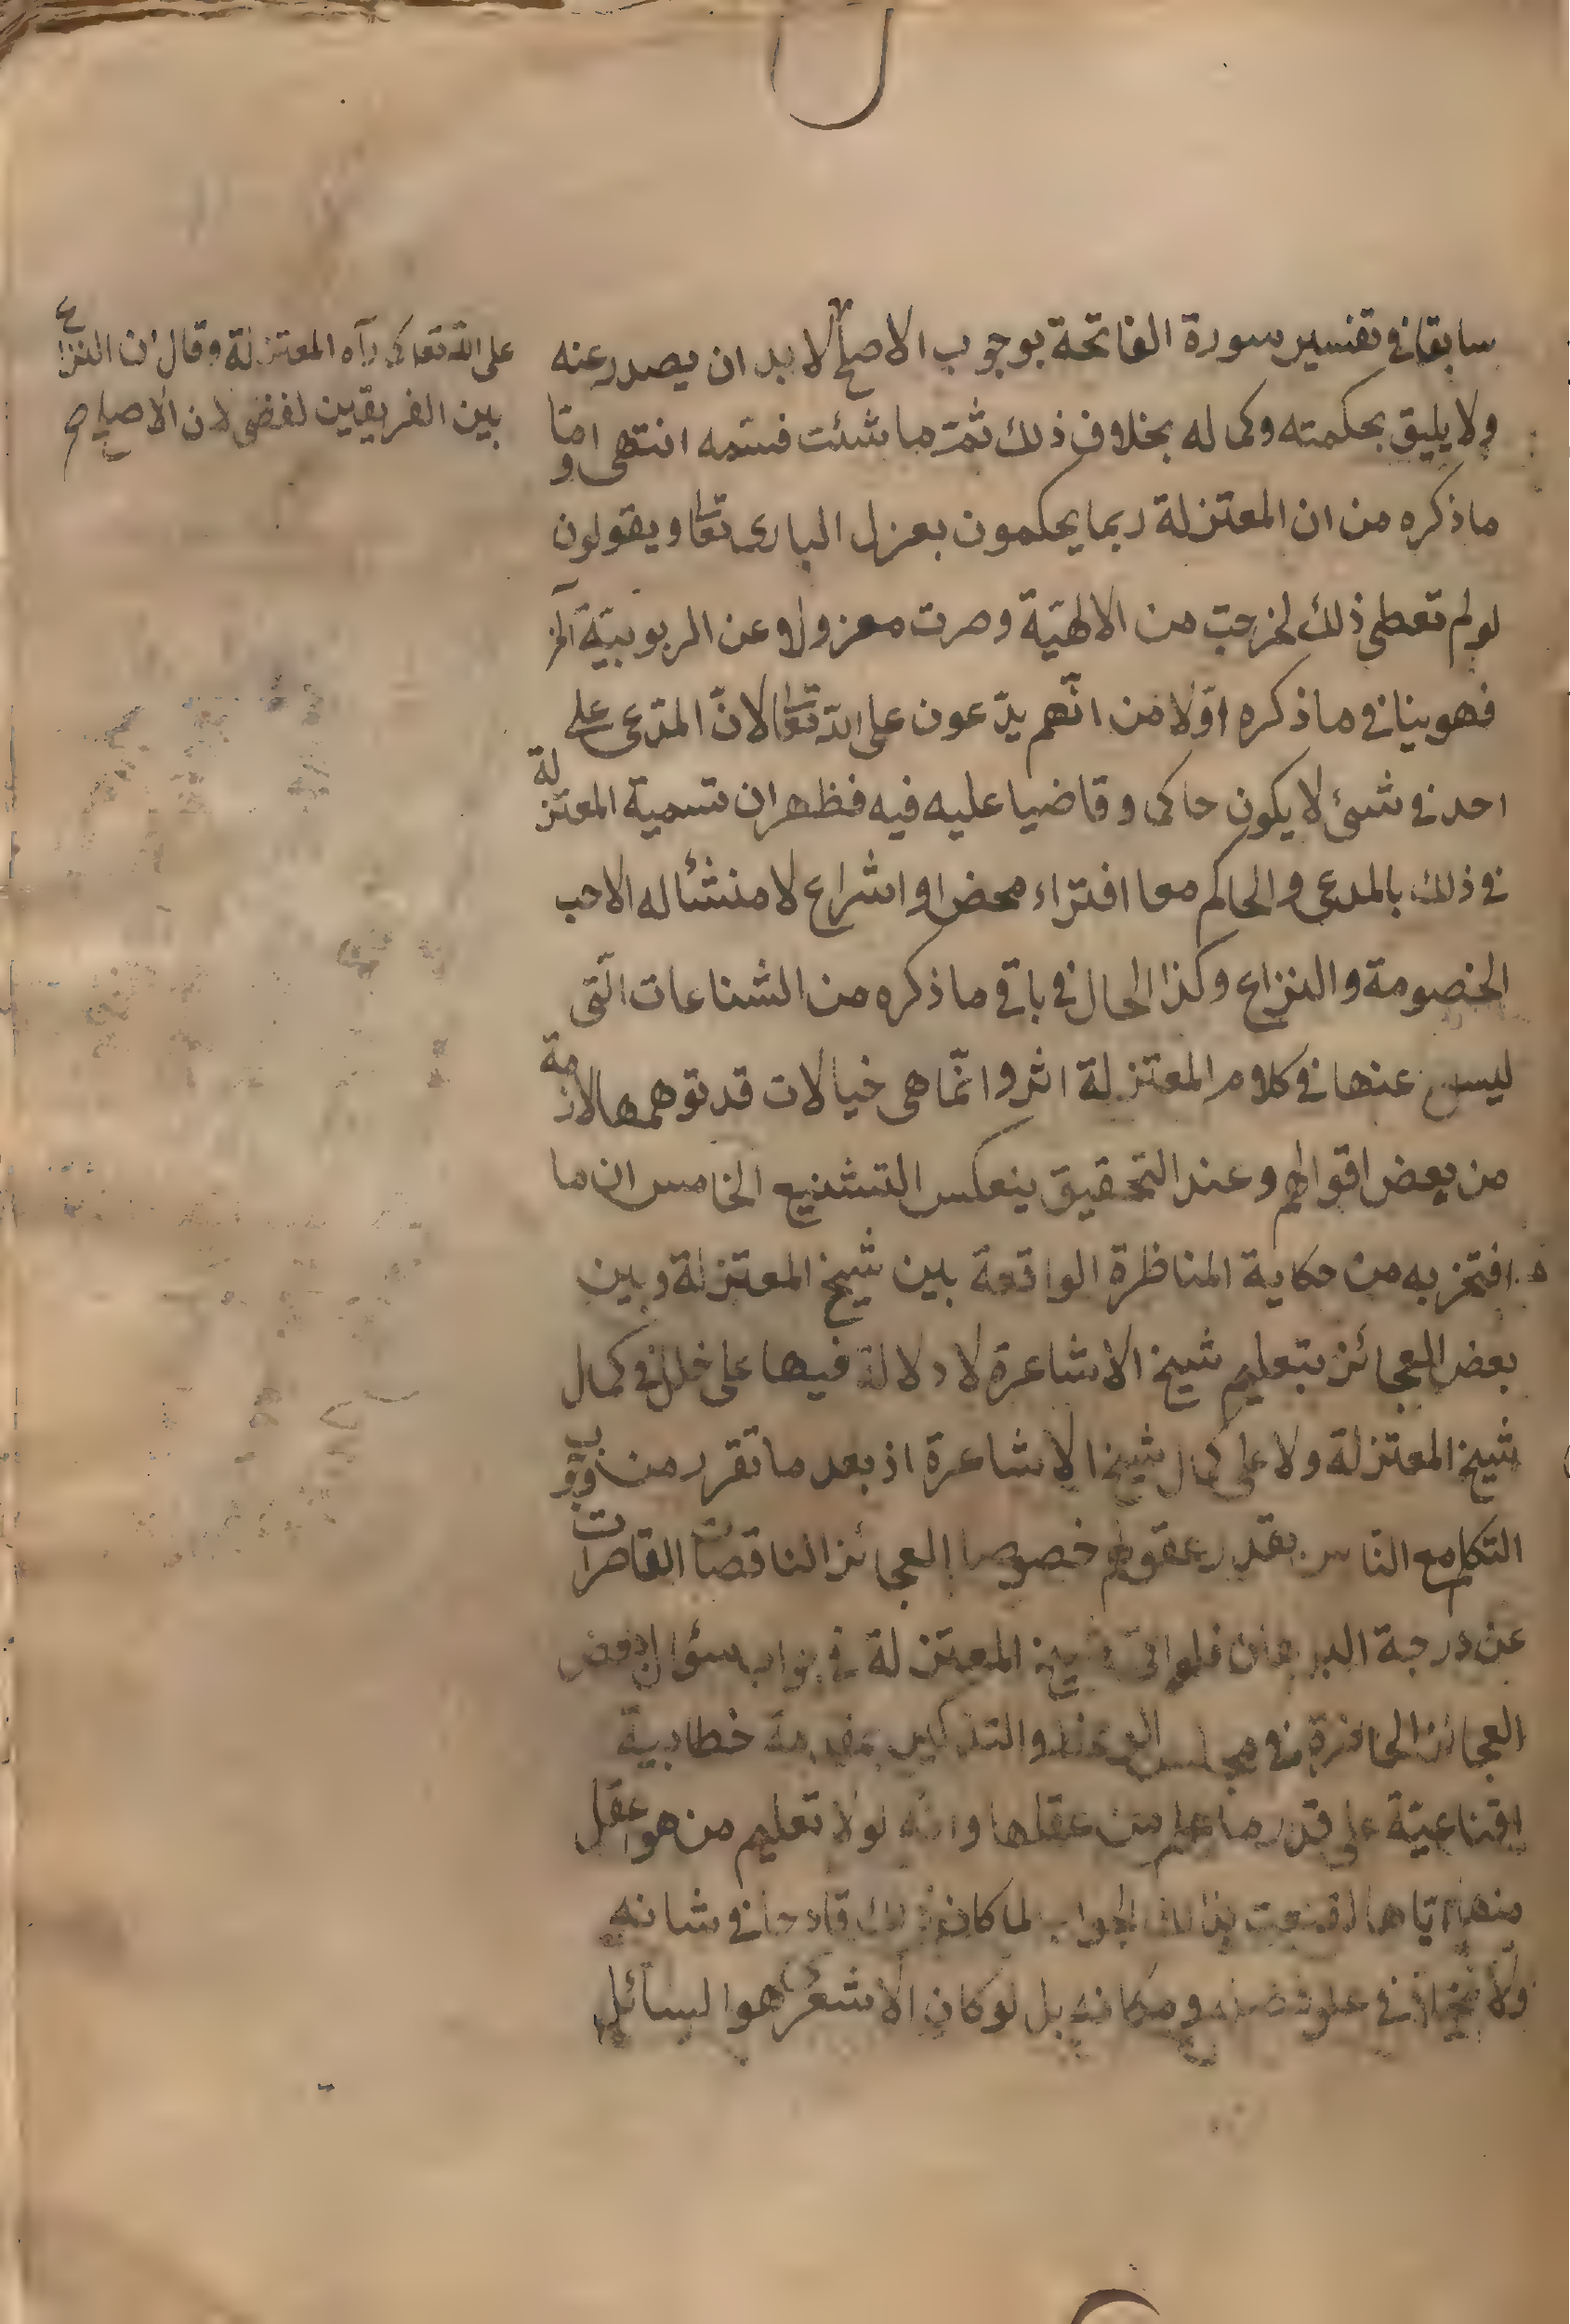 سابقا في تفسير سورة الفاتحة بوجوب الاصلح لا بد ان يصدر عنه
ولا يليق بحكمته وكماله بخلاف ذلك ثمت ما شئت فسمه انتهى وامّا
ما ذكره من ان المعتزلة ربما يحكمون بعزل البارى تعا ويقولون
لو لم تعطى ذلك لخرجت من الالهيّة وصرت معزولا عن الربوبيّة الخ
فهو ينافي ما ذكره اوّلا من انّهم يدّعون على الله تعا لانّ المدّعى على
احد في شئ لا يكون حاكما وقاضيا عليه فيه فظهر ان تسمية المعتزلة
في ذلك بالمدعى والحاكم معا افتراء محض واشراع لا منشئا له الا حب
الخصومة والنزاع وكذا الحال في باقي ما ذكره من الشناعات الّتى
ليس عنها في كلام المعتزلة اثر وانّما هى خيالات قد توهمها لازمة
من بعض اقوالهم وعند التحقيق ينعكس التشنيع الخامس ان ما
افتخر به من حكاية المناظرة الواقعة بين شيخ المعتزلة وبين
بعض العجائز بتعليم شيخ الاشاعرة لا دلالة فيها على خلل في كمال
شيخ المعتزلة ولا على كمال شيخ الاشاعرة اذ بعد ما تقرر من وجوب
التكلم مع الناس بقدر عقولهم خصوصا العجائز الناقصات القاصرات
عن درجة البرهان فلو اتى شيخ المعتزلة في جواب سؤال بعض
العجائز الحاضرة في مجلس الوعظ والتذكير بمقدمة خطابية
اقناعيّة على قدر ما علم من عقلها وانه لولا تعليم من هو اعقل
منها ايّاها لقنعت بذلك الجواب لما كان ذلك قادحا في شانه
ولا في علو فضله ومكانه بل لو كان الاشعرى هو السائل
على الله تعا كما رآه المعتزلة وقال ان النزاع
بين الفريقين لفضى لان الاصلح